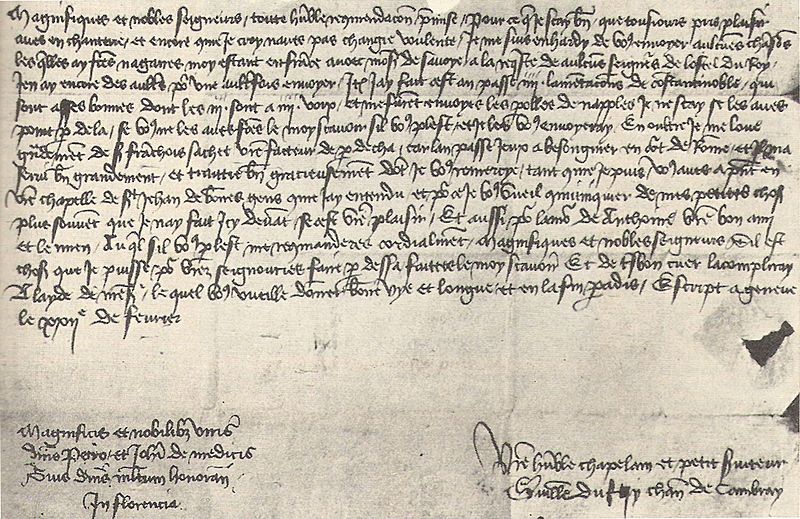 Magnifiques et nobles seigneurs / toute hu͞ble reco͞mendaco͞n / p͞mise / Pour ce q͞ je scay bn͞ / que tousiours pris plaisir
aves en chanterie / et encore que je croy naves pas changie voulente / Je me suis enhardy de vo9 envoyer aulcunes chansos͞
les q͞lles ay fte͞s nagaires moy estant en frāce avec mos͞r de savoye / a la reqste͞ de aulcus͞ seigrs͞ de lostel du Roy /
Jen ay encore des aultrs͞ po͞ vo9 aultrefois envoyer / Jt͞ Jay fait cest an passe iiii lamentacio͞s de constantinoble / qui
sont asses bonnes dont les iii sont a iiii voix / et me furet͞ envoyees les polles͞ de napples Je ne scay se les aves
point p͞ dela / se vo9 ne les aves ftes͞ le moy scavoir sil vo9 plest / et je les vo9 envoyeray / En oultre je me loue
grādement de s͞ franchois sachet vr͞e facteur de p͞ decha / car lan passe jeux a besongnier en crt͞ de Ro͞me / et Jl ma
servi bn͞ grandement / et traittie bn͞ gracieusement dot͞ Je vo9 remercye / tant que je puis / vo9 aves a pn͞t en
vr͞e chapelle de st͞ Jehan de bon͞es gens que jay entendu / et po͞ ce je vo9 vueil co͞muniquer de mes petites chos͞
plus souvent que Je nay fait Jcy devāt / se cest vr͞e plaisir / Et aussi po͞ lamor͞ de Anthoine vr͞e bon ami
et le mien / Au ql͞ sil vo9 plest me reco͞manderes cordialmet͞ / Magnifiques et nobles seigneurs Sil est
chos͞ que Je puisse / po͞ vrez͞ seignouries faire p͞ dessa faittes le moy scavoir Et de tsbon͞ cuer lacompliray
A layde de nr͞e sr͞ / le quel vo9 vueille doner͞ bon͞e vye et longue / et en la fin pa͞dis / Escript a geneve
le xxii e de fevrier
Magnificis et nobilibz viris
dn͞is Petro / et Joh͞i de medicis
Suis dn͞is mltum͞ honoran͞
In florencia
Vr͞e hu͞ble chapelain et petit s͞viteur
Guille͞ du fay chan͞ de Cambray